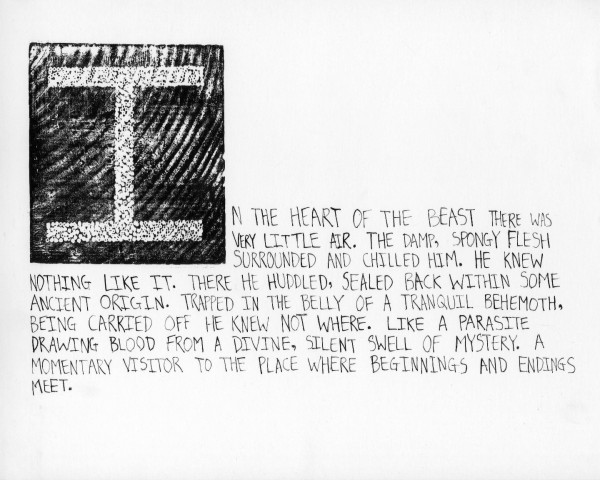 IN THE HEART OF THE BEAST THERE WAS
VERY LITTLE AIR. THE DAMP, SPONGY FLESH
SURROUNDED AND CHILLED HIM. HE KNEW
NOTHING LIKE IT. THERE HE HUDDLED, SEALED BACK WITHIN SOME
ANCIENT ORIGIN. TRAPPED IN THE BELLY OF A TRANQUIL BEHEMOTH,
BEING CARRIED OFF HE KNEW NOT WHERE. LIKE A PARASITE
DRAWING BLOOD FROM A DIVINE, SILENT SWELL OF MYSTERY. A
MOMENTARY VISITOR TO THE PLACE WHERE BEGINNINGS AND ENDINGS
MEET.